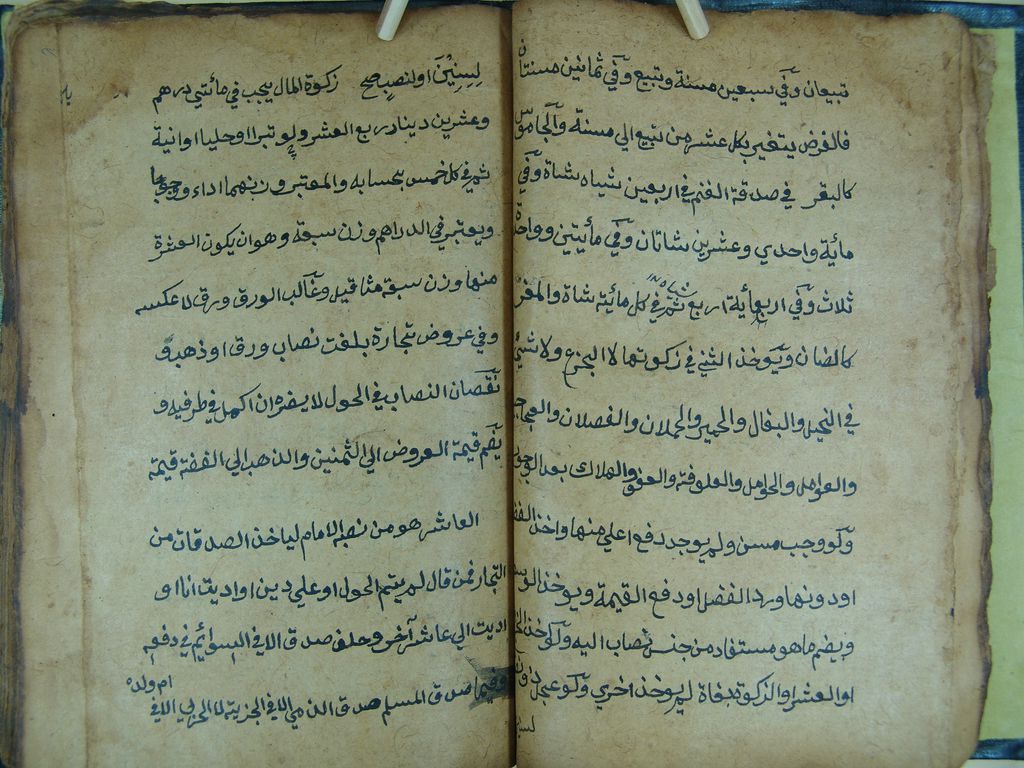 تبيعان وفي سبعين مسنة وتبيع وفي ثمانين مسنتان
فالفرض يتغير بكل عشر من تبيع الي مسنة والجاموس
كالبقر في صدقة الغنم في اربعين شياه شاة وفي
مائة واحدي وعشرين شاتان وفي مأيتين وواحدة
ثلاث وفي اربعمأية اربع ثم في كل مائة شاة والمعز
كالضان ويوخذ الثني في زكوتها لا الجذع ولا شيء
في الخيل والبغال والحمير والحملان والفصلان والعجاجيل
والعوامل والحوامل والعلوفة والعفو والهلاك بعد الوجوب
ولو وجب مسن ولم يوجد دفع اعلي منها واخذ الفضل
او دونها ورد الفضل او دفع القيمة ويوخذ الوسط
ويضم ما هو مستفاد من جنس نصاب اليه ولو اخذ الخراج
او العشر او الزكوة بغاة لم يوخذ اخري ولو عجل ذو نصاب
لسنين
لسنين او لنصب صح زكوة المال يجب في مأتي درهم
وعشرين دينار ربع العشر ولو تبرا او حليا او انية
ثم في كل خمس بحسابه والمعتبر وزنهما اداء ووجوبا
ويعتبر في الدراهم وزن سبعة وهو ان يكون العشرة
منها وزن سبعة مثاقيل وغالب الورق ورق لا عكسه
وفي عروض تجارة بلغت نصاب ورق او ذهب و
نقصان النصاب في الحول لا يضره ان اكمل في طرفيه و
يضم قيمة العروض الي الثمنين والذهب الي الفضة قيمة
العاشر هو من نصبه الامام لياخذ الصدقات من
التجار فمن قال لم يتم الحول او علي دين او اديت انا او
اديت الي عاشر آخر وحلف صدق الا في السوائم في دفعه
وفيما صدق المسلم صدق الذمي الا في الجزية لا الحربي الا في
ام ولده